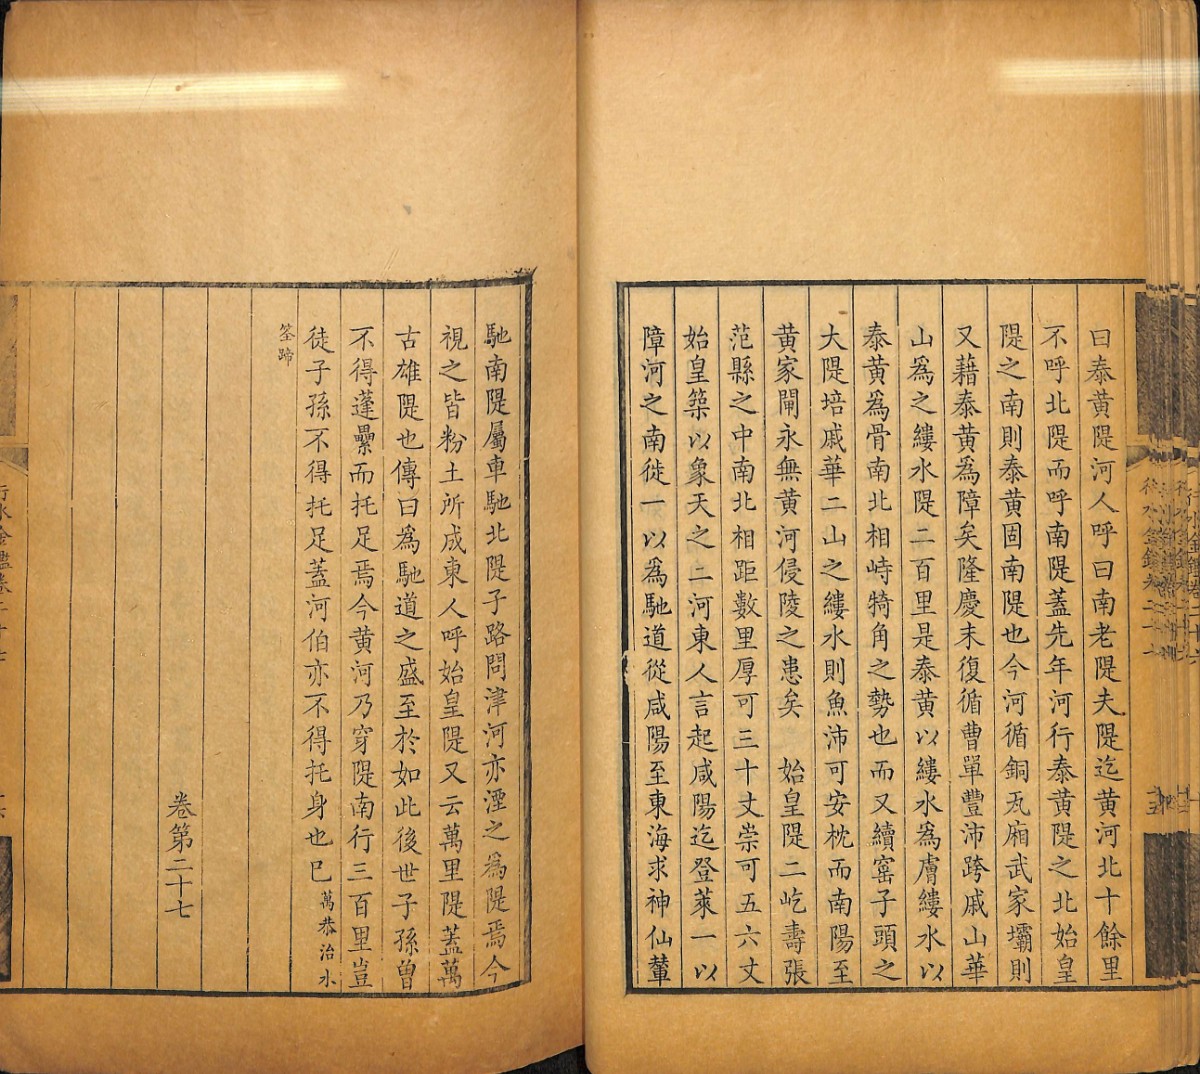 曰泰黄隄河人呼曰南老隄夫隄迄黄河北十餘里
不呼北隄而呼南隄蓋先年河行泰黄隄之北始皇
隄之南則泰黄固南隄也今河循銅瓦廂武家壩則
又藉泰黄爲障矣隆慶末復循曹單豐沛跨戚山華
山爲之縷水隄二百里是泰黄以縷水爲膚縷水以
泰黄爲骨南北相峙犄角之勢也而又續窰子頭之
大隄培戚華二山之縷水則魚沛可安枕而南陽至
黄家閘永無黄河侵陵之患矣　始皇隄二屹壽張
范縣之中南北相距數里厚可三十丈崇可五六丈
始皇築以象天之二河東人言起咸陽迄登萊一以
障河之南徙一以爲馳道從咸陽至東海求神仙輦
馳南隄屬車馳北隄子路問津河亦湮之爲隄焉今
視之皆粉土所成東人呼始皇隄又云萬里隄蓋萬
古雄隄也傳曰爲馳道之盛至於如此後世子孫曾
不得蓬纍而托足焉今黄河乃穿隄南行三百里豈
徒子孫不得托足蓋河伯亦不得托身也巳萬恭治水
筌蹄
卷第二十七
行水金鑑卷二十七